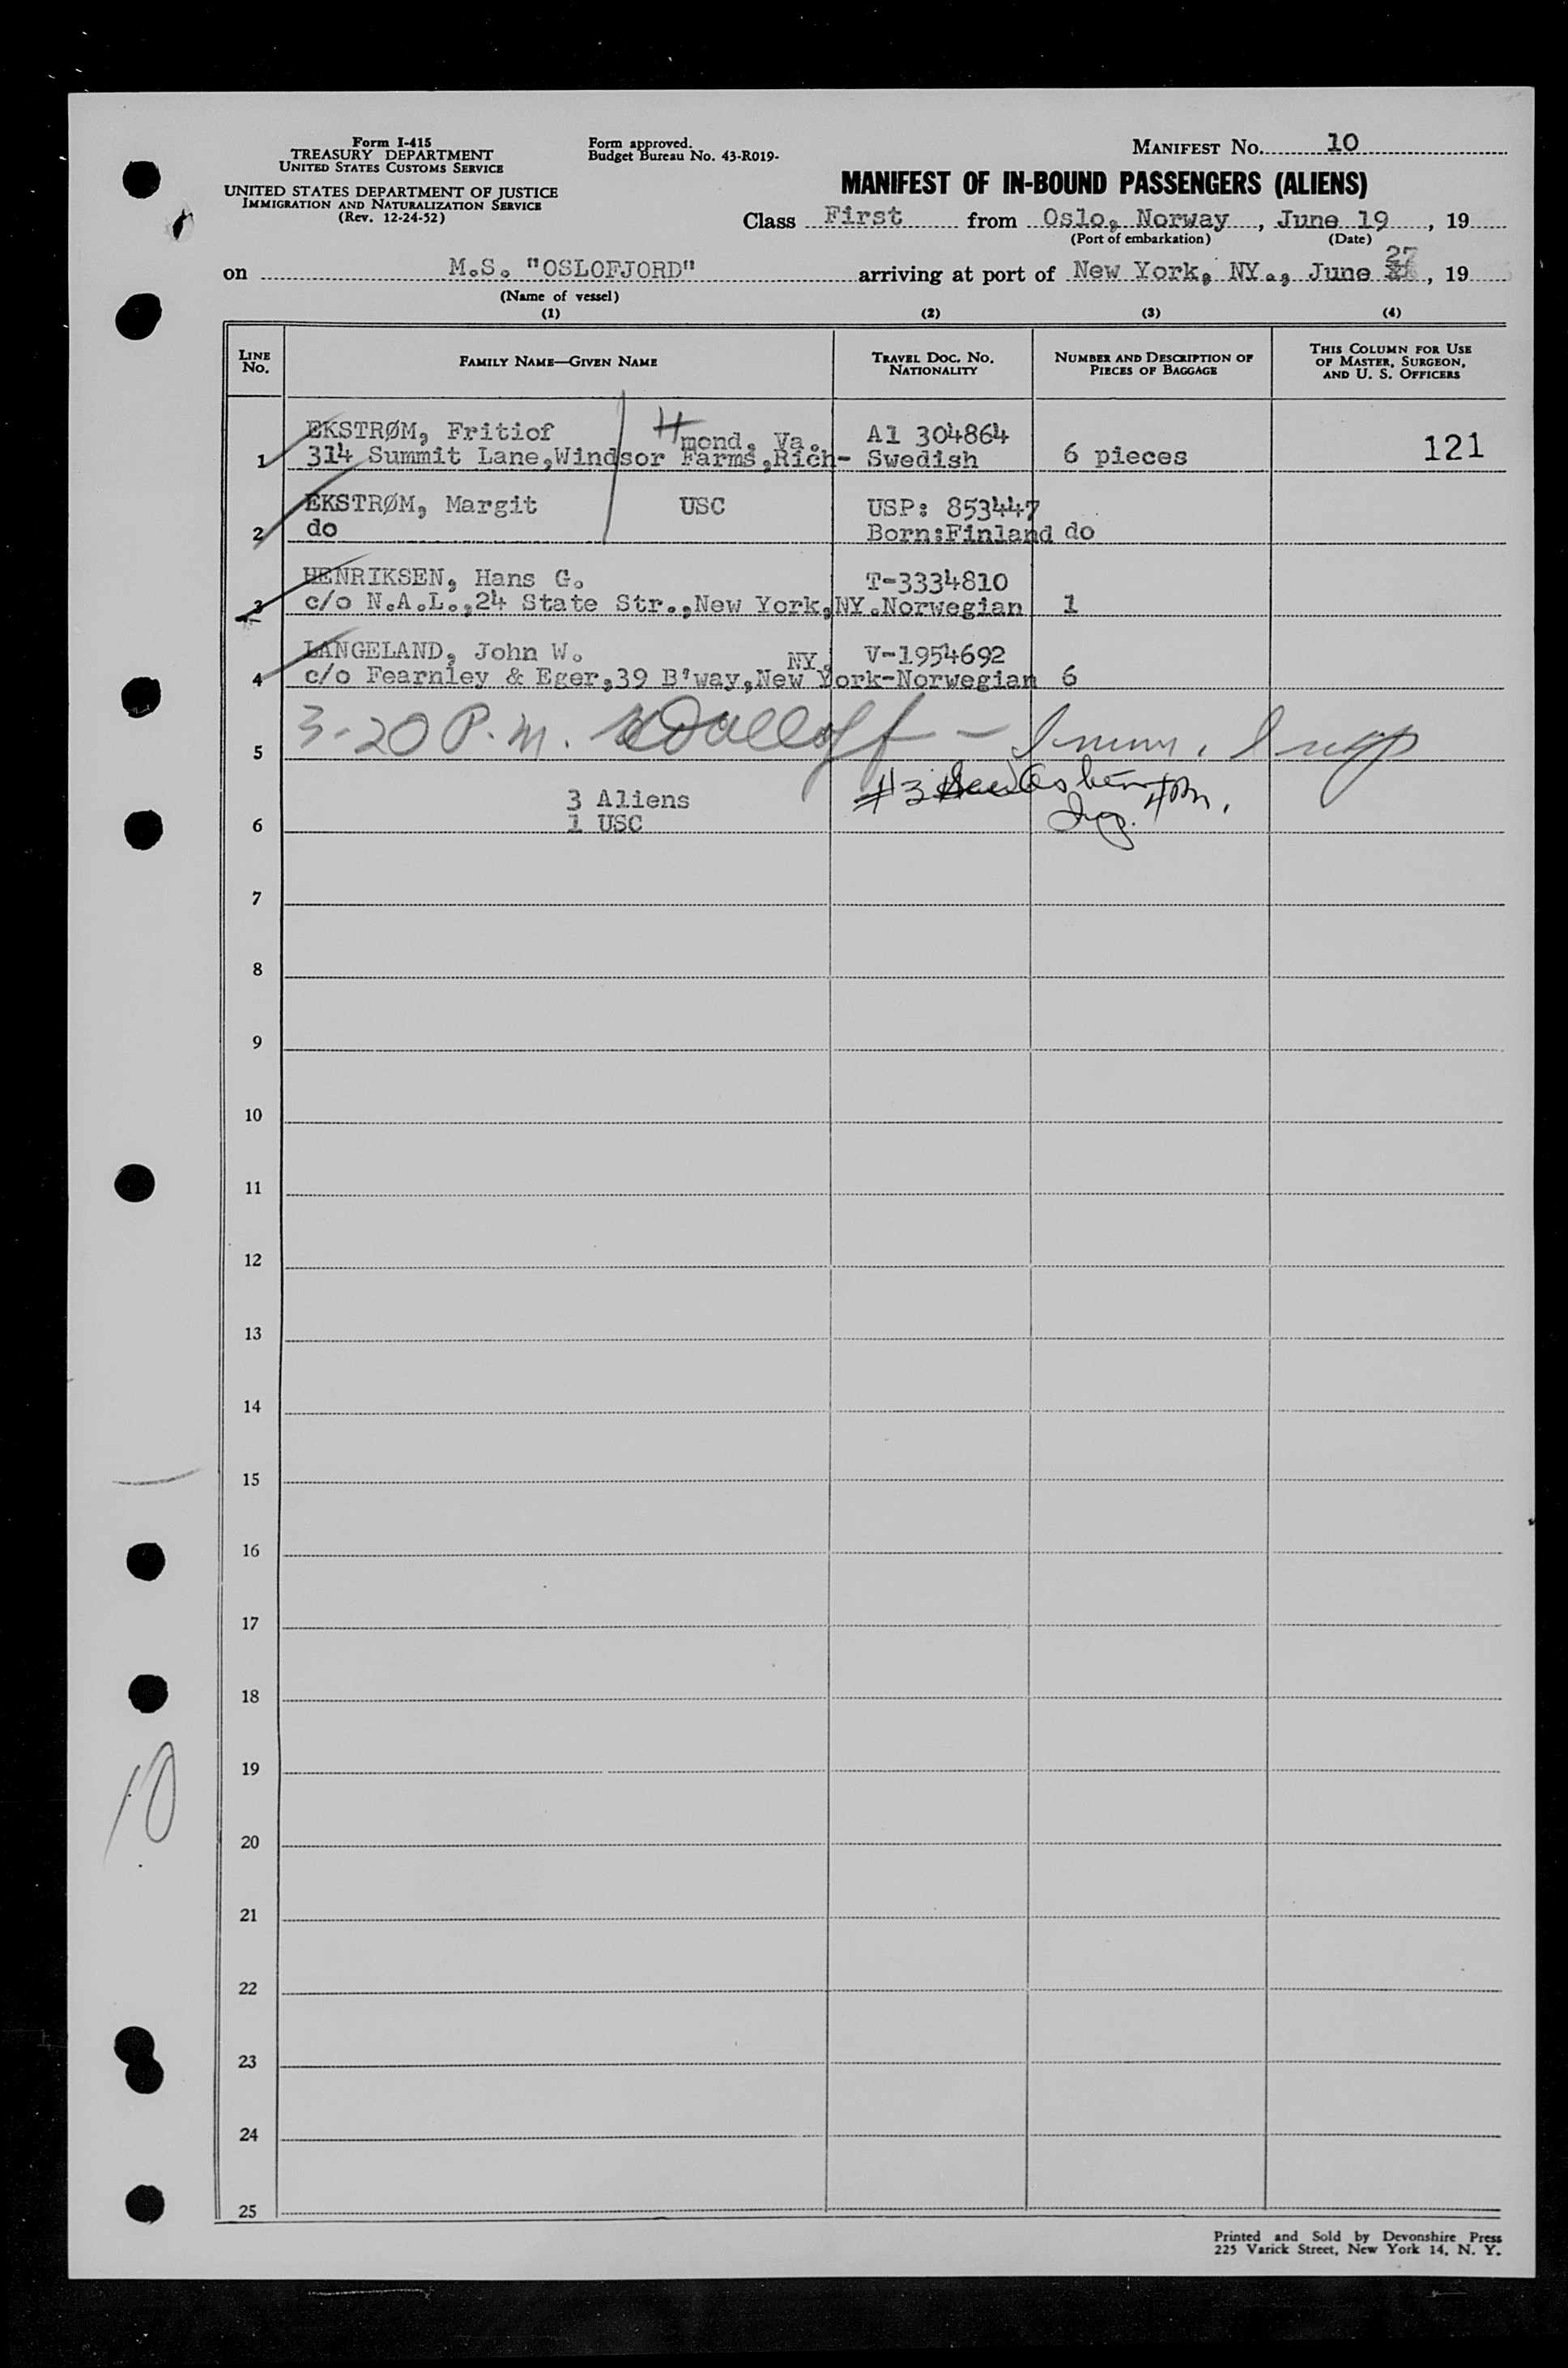 Form I-415
TREASURY DEPARTMENT
UNITED STATES CUSTOMS SERVICE
UNITED STATES DEPARTMENT OF JUSTICE
IMMIGRATION AND NATURALIZATION SERVICE
(Rev. 12-24-52)
Form approved.
Budget Bureau No. 43-R019-
MANIFEST NO. 10
MANIFEST OF IN-BOUND PASSENGERS (ALIENS)
Class First from Oslo, Norway, June 19, 19
(Port of embarkation) (Date)
27
on M.S. "OSLOFJORD" arriving at port of New York, NY., June , 19
(Name of vessel)
(1) (2) (3) (4)
LINE No. FAMILY NAME—GIVEN NAME TRAVEL DOC. NO. NATIONALITY NUMBER AND DESCRIPTION OF PIECES OF BAGGAGE THIS COLUMN FOR USE OF MASTER, SURGEON, AND U. S. OFFICERS
EKSTRØM, Fritiof mond, Va. A1 304864
1 314 Summit Lane,Windsor Farms,Rich- Swedish 6 pieces 121
EKSTRØM, Margit USC USP: 853447
2 do Born:Finland do
HENRIKSEN, Hans G. T-3334810
3 c/o N.A.L.,24 State Str.,New York,NY.Norwegian 1
LANGELAND, John W. NY. V-1954692
4 c/o Fearnley & Eger,39 B'way,New York-Norwegian 6
3-20 P.M. – Immn. Insp
5
#3
3 Aliens
6 1 USC
7
8
9
10
11
12
13
14
15
16
17
18
19
10
20
21
22
23
24
25
Printed and Sold by Devonshire Press
225 Varick Street, New York 14, N. Y.